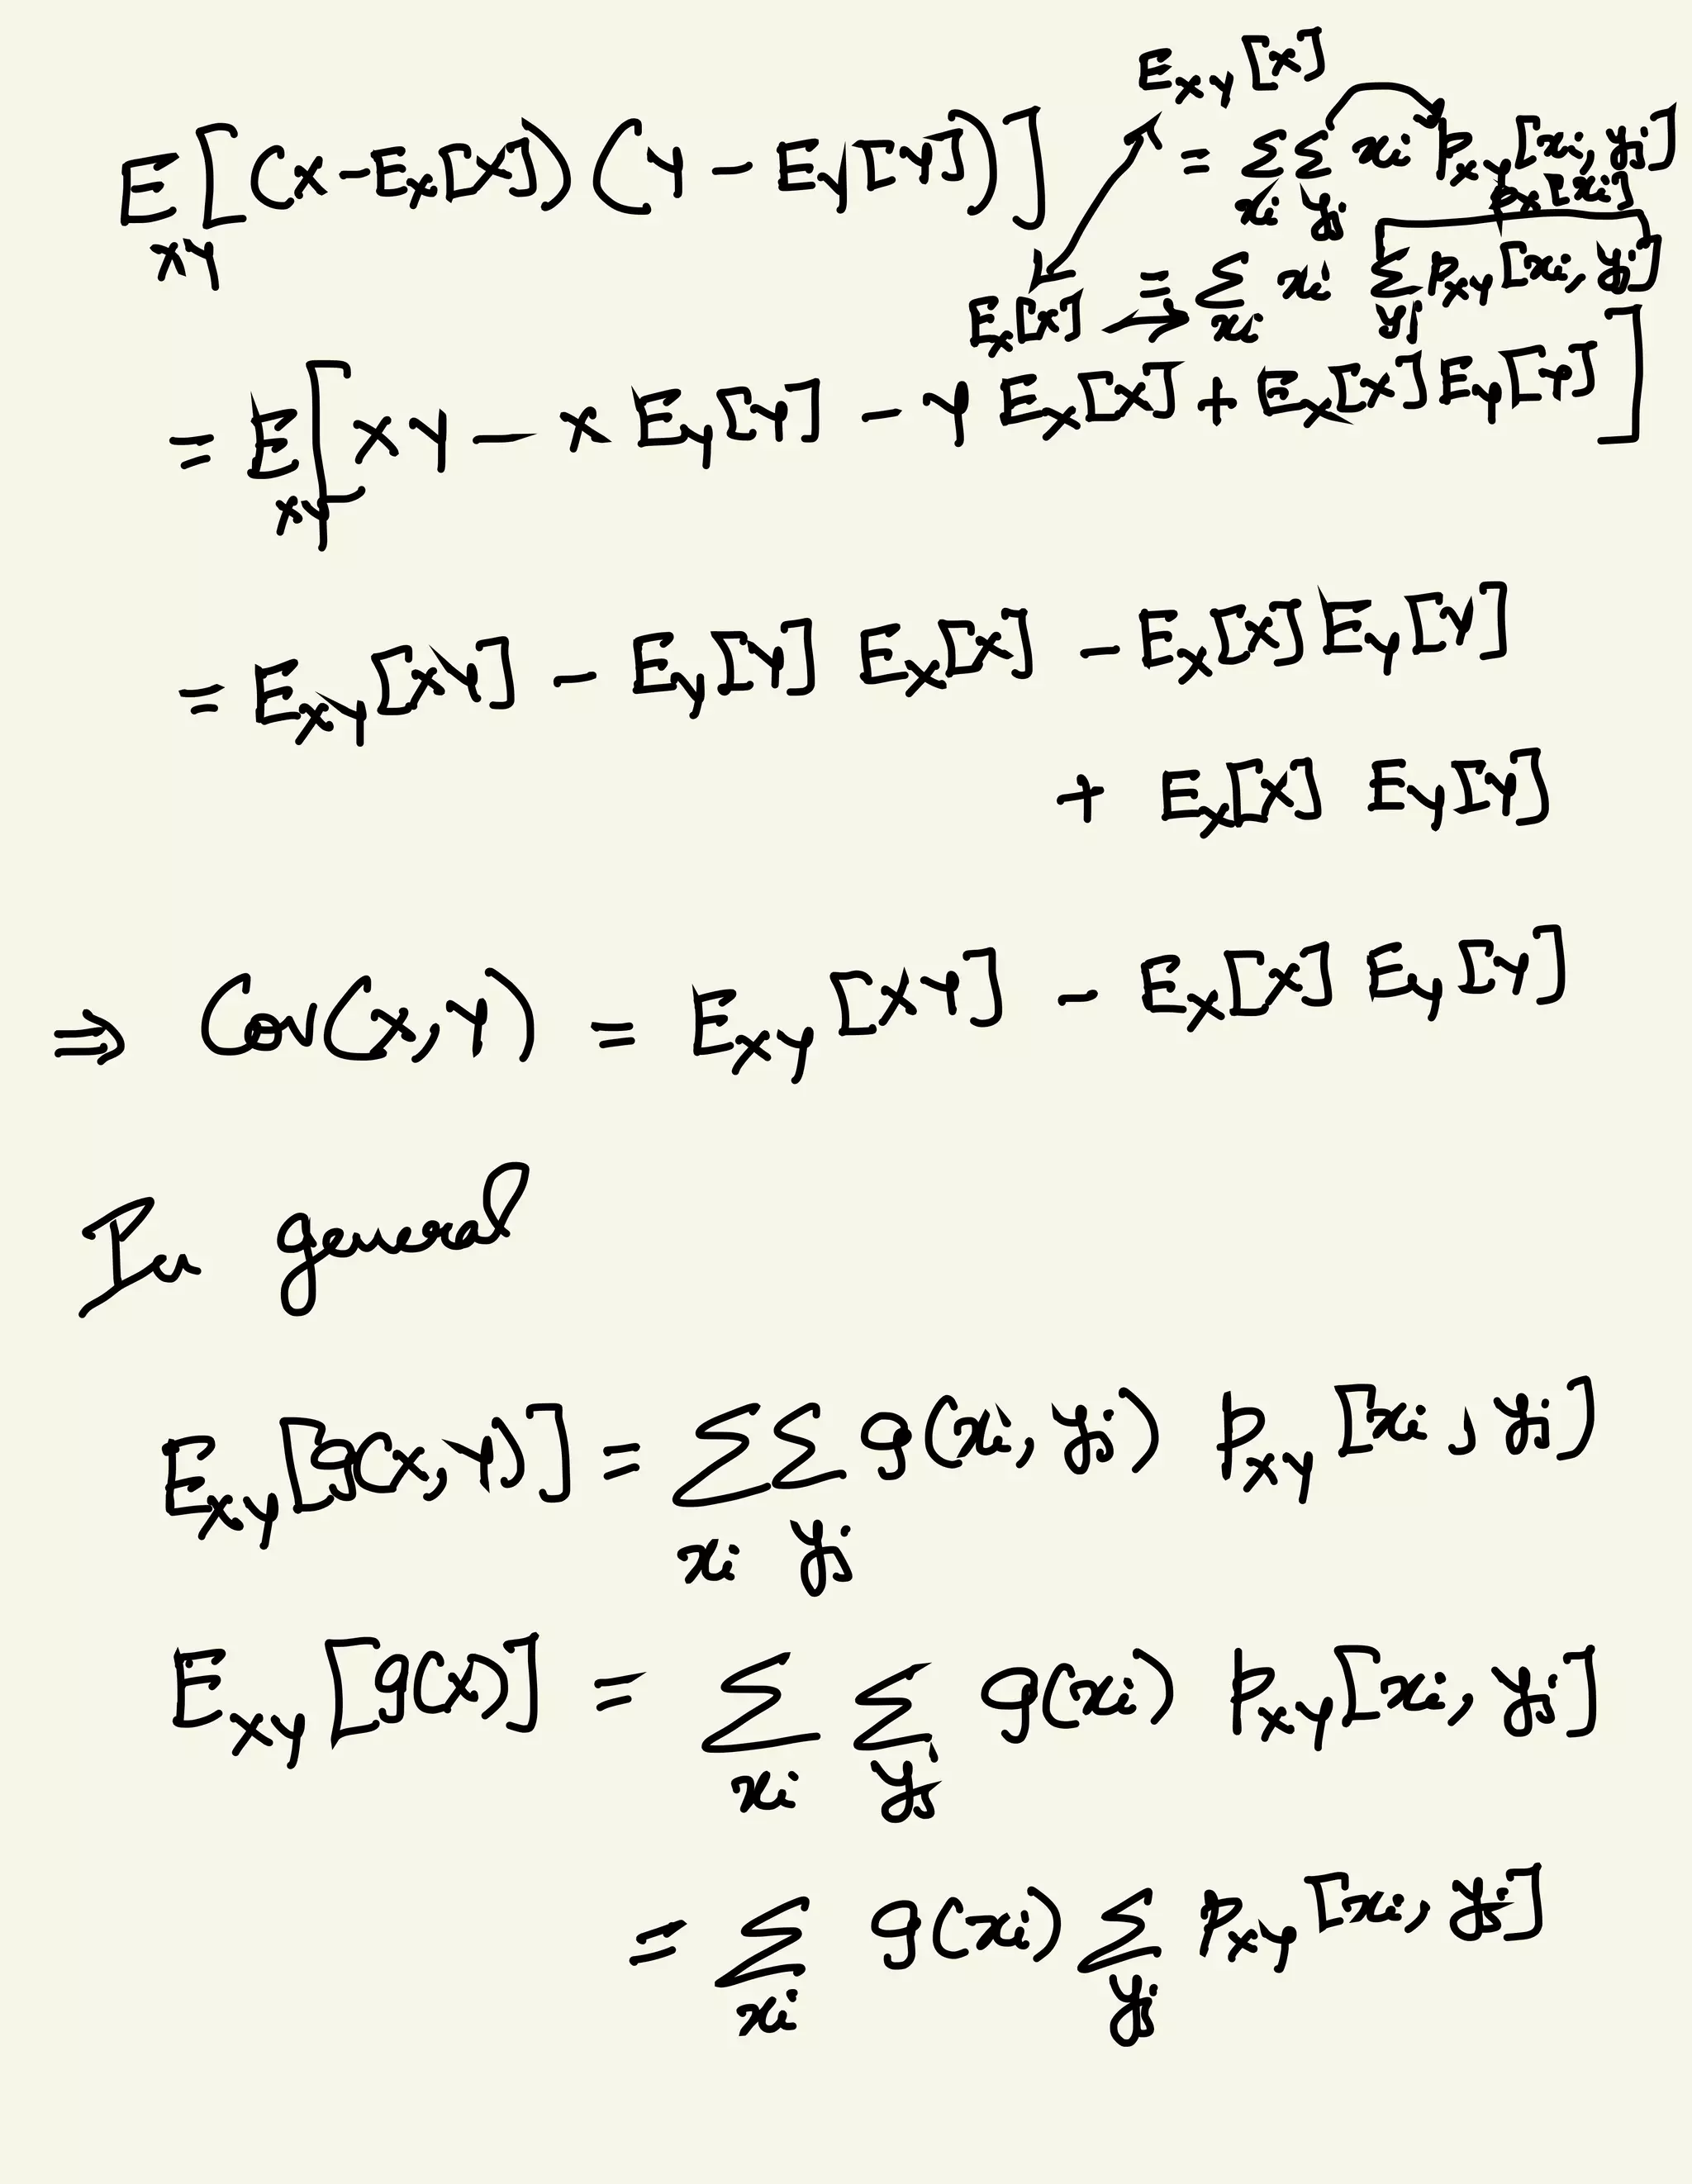 E_{XY}[(X - E_X[X])(Y - E_Y[Y])]
E_{XY}[X]
= Σ_{xi} Σ_{yj} xi p_{XY}[xi, yj]
p_X[xi]
E_X[X] → = Σ_{xi} xi Σ_{yj} p_{XY}[xi, yj]
= E_{XY}[XY - X E_Y[Y] - Y E_X[X] + E_X[X] E_Y[Y]]
= E_{XY}[XY] - E_Y[Y] E_X[X] - E_X[X] E_Y[Y]
+ E_X[X] E_Y[Y]
⇒ Cov(X, Y) = E_{XY}[XY] - E_X[X] E_Y[Y]
In general
E_{XY}[g(X, Y)] = Σ_{xi} Σ_{yj} g(xi, yj) p_{XY}[xi, yj]
E_{XY}[g(X)] = Σ_{xi} Σ_{yj} g(xi) p_{XY}[xi, yj]
= Σ_{xi} g(xi) Σ_{yj} p_{XY}[xi, yj]